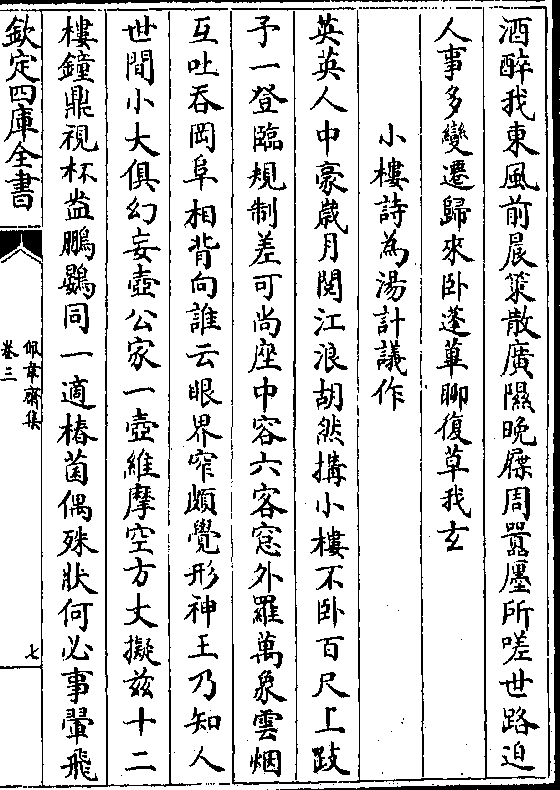 酒醉我東風前晨策散廣隰晚屧周囂廛所嗟世路迫
人事多變遷歸來卧蓬蓽聊復草我玄
小樓詩為湯計議作
英英人中豪歳月閱江浪胡然搆小樓不卧百尺上跂
予一登臨規制差可尚座中容六客窓外羅萬象雲烟
互吐吞岡阜相背向誰云眼界窄頗覺形神王乃知人
世間小大俱幻妄壺公家一壺維摩空方丈擬兹十二
樓鐘鼎視杯盎鵬鷃同一適椿菌偶殊狀何必事翬飛
欽定四庫全書
佩韋齋集
卷三
七